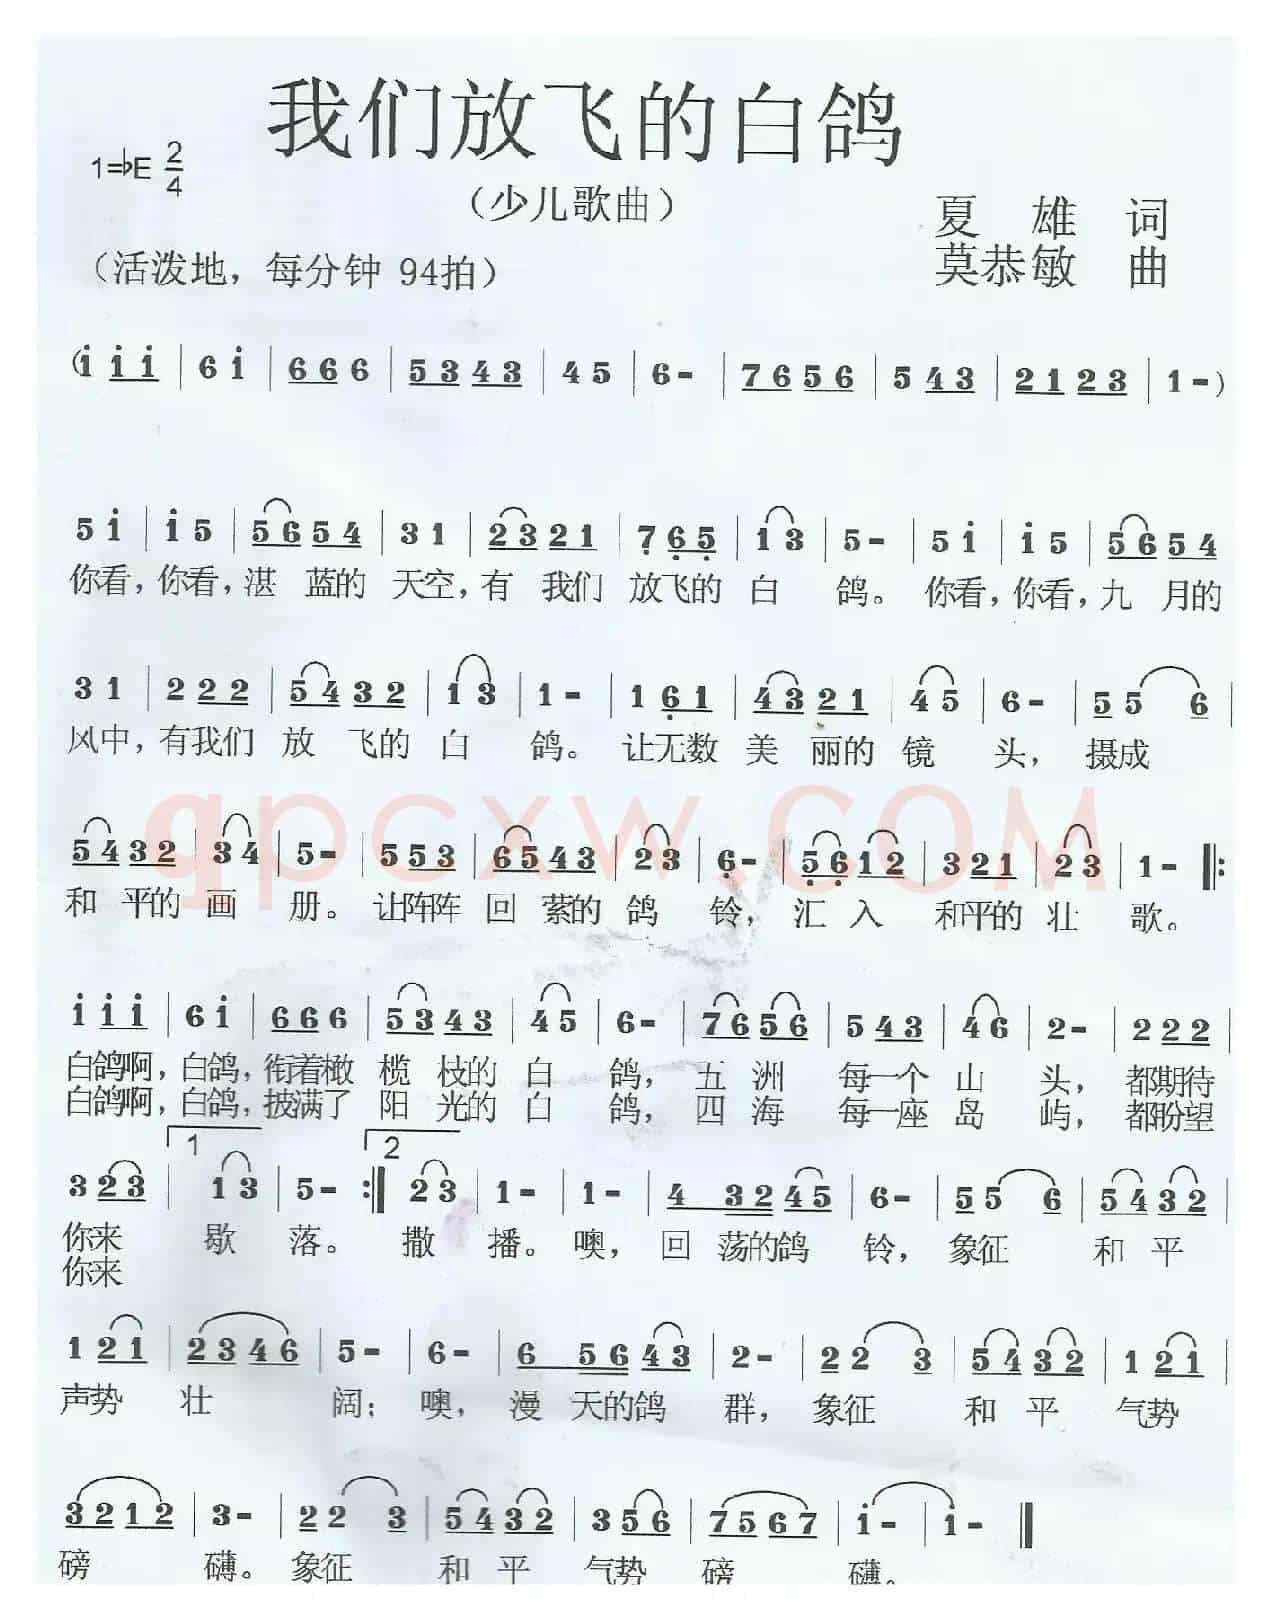 我们放飞的白鸽
1=♭E 2/4
（少儿歌曲）
夏 雄 词
（活泼地，每分钟 94拍）
莫恭敏 曲
(i̇ i̇ i̇ | 6 i̇ | 6 6 6 | 5 3 4 3 | 4 5 | 6 - | 7 6 5 6 | 5 4 3 | 2 1 2 3 | 1 - )
5 i̇ | i̇ 5 | 5 6 5 4 | 3 1 | 2 3 2 1 | 7̣ 6̣ 5̣ | 1 3 | 5 - | 5 i̇ | i̇ 5 | 5 6 5 4
你看，你看，湛 蓝的 天空，有 我们 放飞的 白 鸽。 你看，你看，九 月的
3 1 | 2 2 2 | 5 4 3 2 | 1 3 | 1 - | 1 6̣ 1 | 4 3 2 1 | 4 5 | 6 - | 5 5 6 |
风中，有我们 放 飞的 白 鸽。 让无数 美 丽的 镜 头， 摄成
5 4 3 2 | 3 4 | 5 - | 5 5 3 | 6 5 4 3 | 2 3 | 6̣ - | 5̣ 6̣ 1 2 | 3 2 1 | 2 3 | 1 - ‖:
和 平的 画 册。 让阵阵 回 萦的 鸽 铃，汇 入 和平的 壮 歌。
i̇ i̇ i̇ | 6 i̇ | 6 6 6 | 5 3 4 3 | 4 5 | 6 - | 7 6 5 6 | 5 4 3 | 4 6 | 2 - | 2 2 2 |
白鸽啊，白鸽，衔着橄 榄 枝的 白 鸽， 五 洲 每一个 山 头， 都期待
白鸽啊，白鸽，披满了 阳 光的 白 鸽， 四 海 每一座 岛 屿， 都盼望
1 2
3 2 3 | 1 3 | 5 - :‖ 2 3 | 1 - | 1 - | 4 3 2 4 5 | 6 - | 5 5 6 | 5 4 3 2 |
你来 歇 落。 撒 播。 噢， 回 荡的鸽 铃， 象征 和 平
你来
1 2 1 | 2 3 4 6 | 5 - | 6 - | 6 5 6 4 3 | 2 - | 2 2 3 | 5 4 3 2 | 1 2 1 |
声势 壮 阔； 噢， 漫 天的鸽 群， 象征 和 平 气势
3 2 1 2 | 3 - | 2 2 3 | 5 4 3 2 | 3 5 6 | 7 5 6 7 | i̇ - | i̇ - ‖
磅 礴。 象征 和 平 气势 磅 礴。
qpcxw.COM